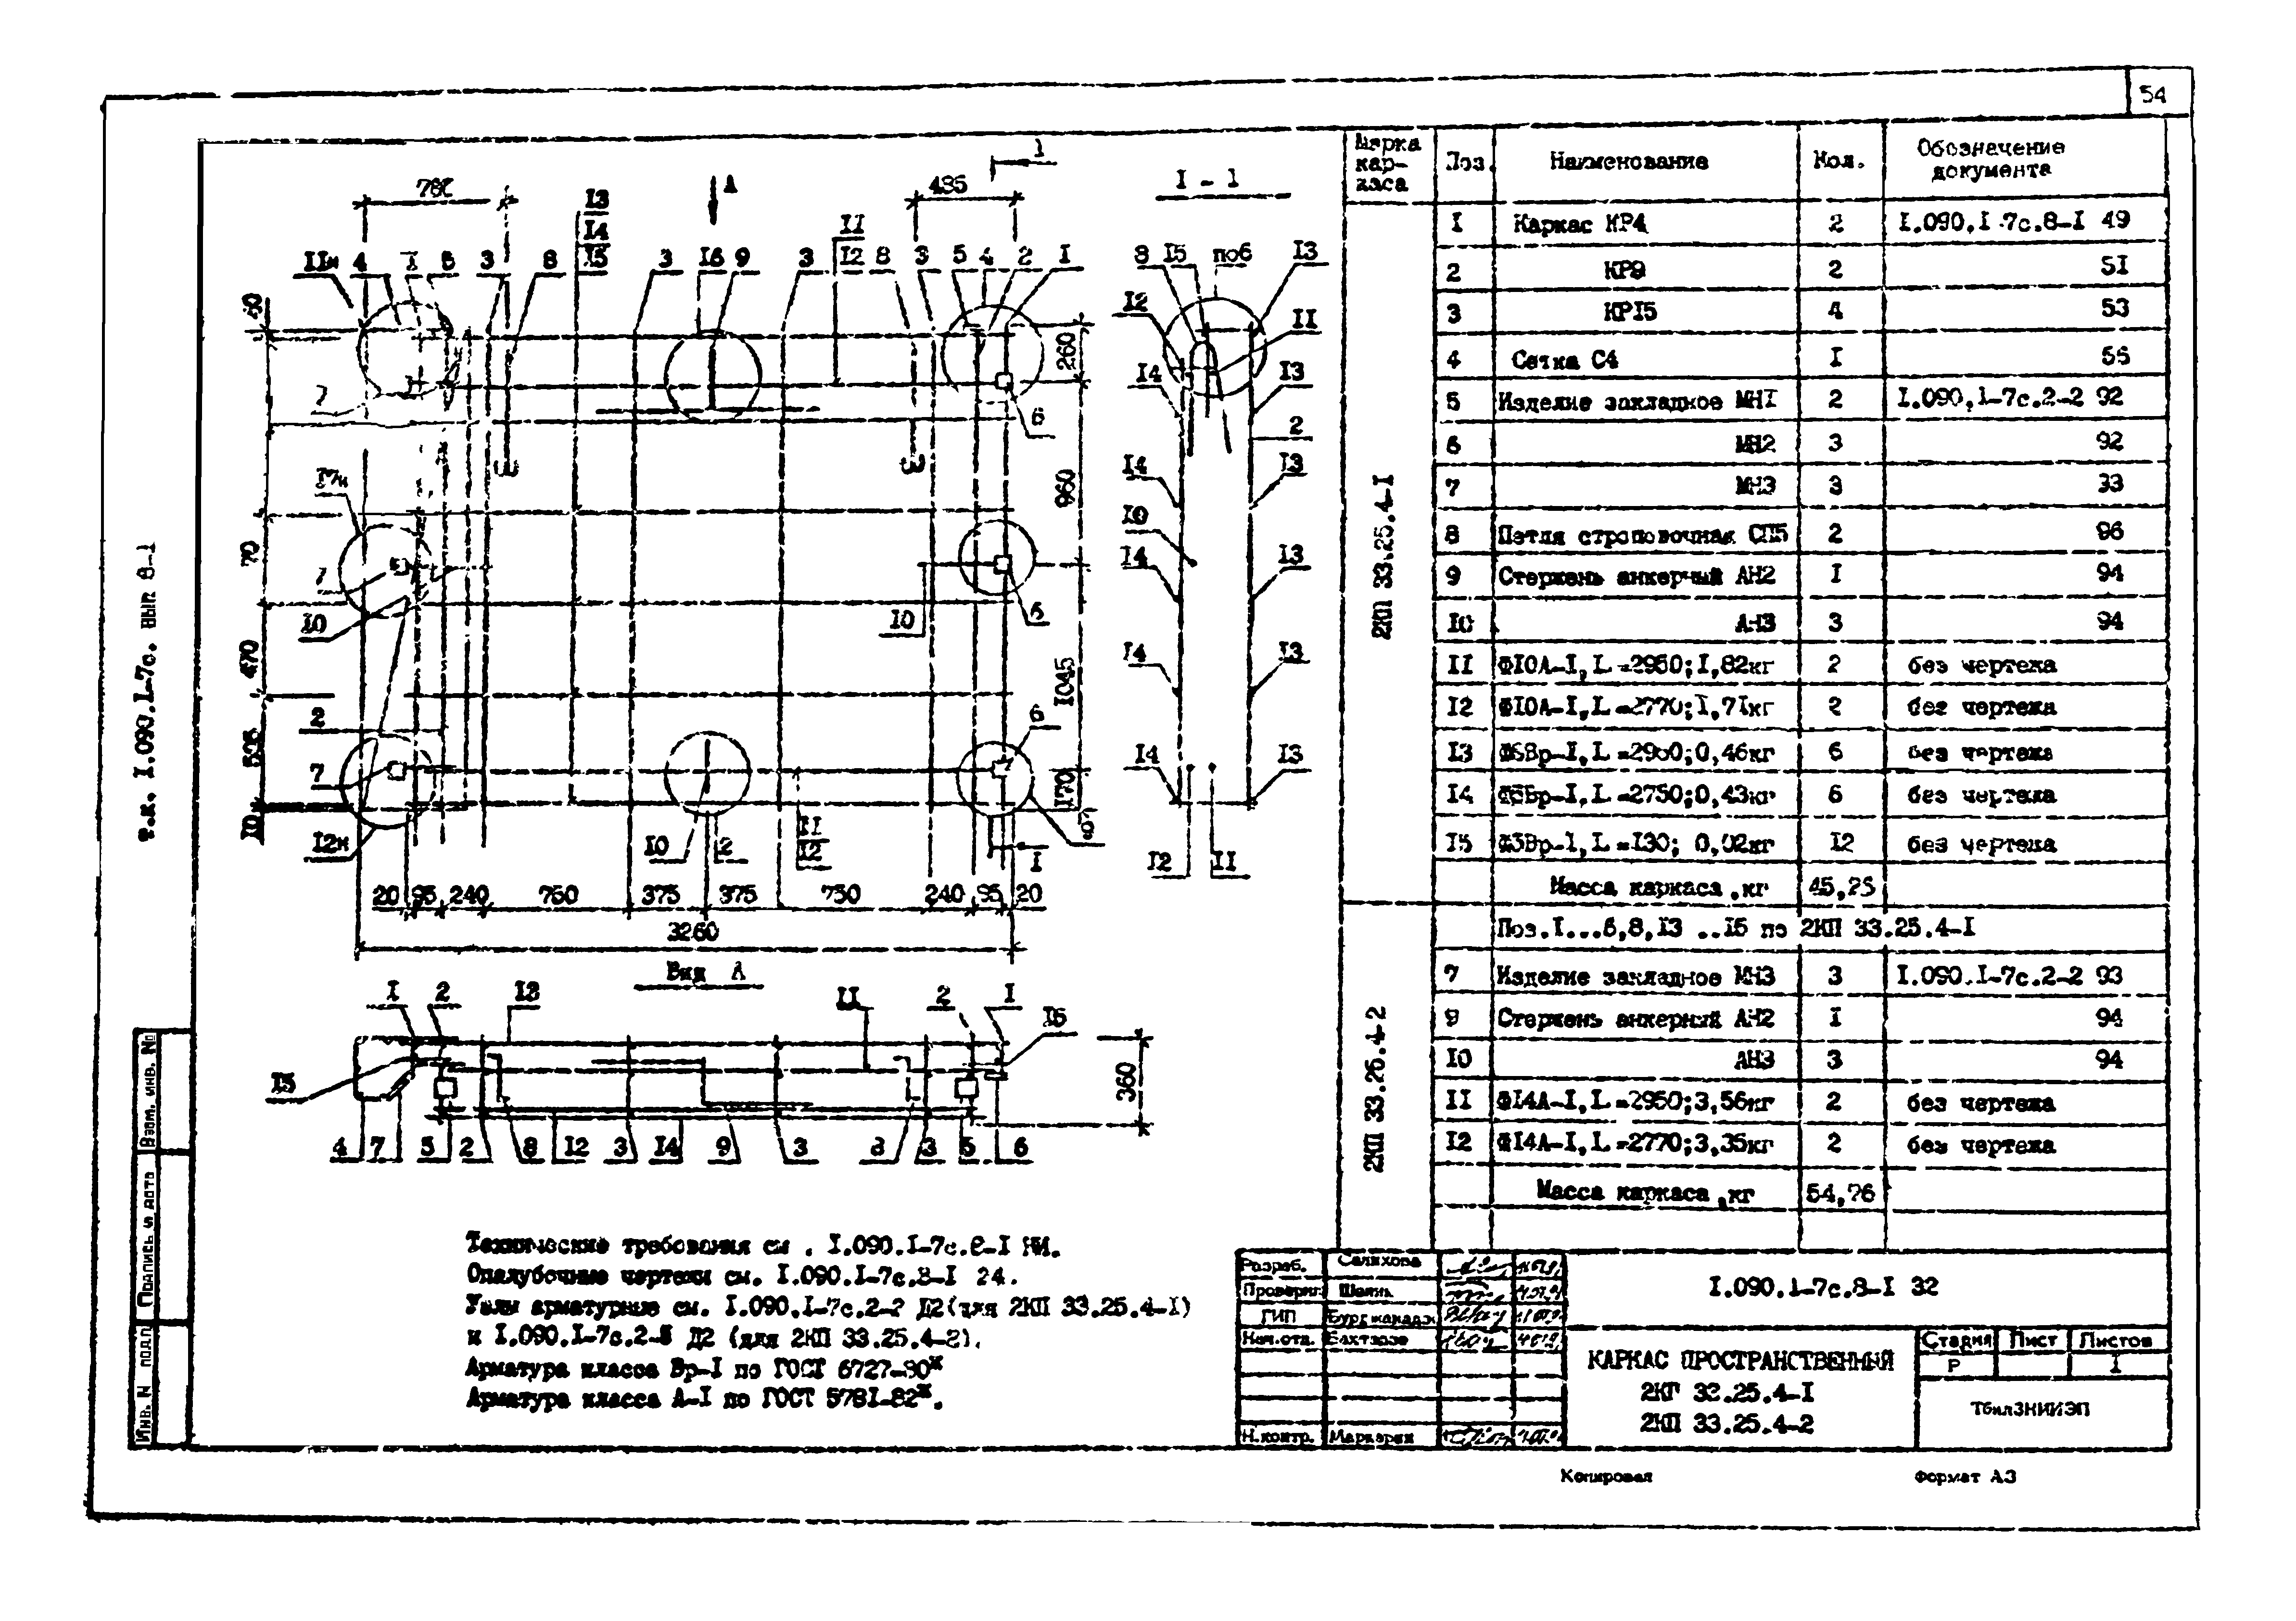 54
т.к. I.090.I-7с. вып 8-1
Взам. инв. №
Подпись и дата
Инв. N подл
1
А
I - 1
485
13
14
15
11
12
11н 4 1 5 3 8
3 16 9 3
8 3 5 4 2 1
8 15 по6 13
12
11
14 13
2
14 13
10
14 13
14 13
14 13
12 11
260
960
1045
170
70
470
10
7
6
7
10
10 6
2
7
6
12н
10
12
11
12
1
20 95 240 750 375 375 750 240 95 20
3260
Вид А
1 2 13 11 2 1
16
15
360
4 7 5 2 8 12 3 14 9 3 8 3 5 6
Технические требования см. I.090.I-7с.8-I
Опалубочные чертежи см. I.090.I-7с.8-I 24.
Узлы арматурные см. I.090.I-7с.2-2 Д2(для 2КП 33.25.4-I)
и I.090.I-7с.2-5 Д2 (для 2КП 33.25.4-2).
Арматура класса Вр-I по ГОСТ 6727-80*
Арматура класса А-I по ГОСТ 5781-82*.
Марка каркаса Поз. Наименование Кол. Обозначение документа
2КП 33.25.4-I
I Каркас КР4 2 I.090.I-7с.8-I 49
2 КР9 2 5I
3 КР15 4 53
4 Сетка С4 I
5 Изделие закладное МН1 2 I.090.1-7с.2-2 92
6 МН2 3 92
7 МН3 3
8 Петля строповочная СП5 2 96
9 Стержень анкерный АН2 I 94
10 АН3 3 94
II Ф10А-I, L=2950; I,82кг 2 без чертежа
I2 Ф10А-I, L=2770; I,71кг 2 без чертежа
I3 L=2950; 0,46кг 6 без чертежа
I4 Ф5Вр-I, L=2750; 0,43кг 6 без чертежа
I5 Ф3Вр-1, L=I30; 0,02кг I2 без чертежа
Масса каркаса, кг
2КП 33.25.4-2
Поз.I...6,8,I3...I6 по 2КП 33.25.4-I
7 Изделие закладное МН3 3 I.090.I-7с.2-2 93
9 Стержень анкерный АН2 I 94
10 АН3 3 94
II Ф14А-I, L=2950; 3,56кг 2 без чертежа
I2 Ф14А-I, L=2770; 3,35кг 2 без чертежа
Масса каркаса, кг 54,76
Разраб. Салихова
Проверил
ГИП
Нач.отд.
Н.контр. Маркарян
I.090.1-7с.8-I 32
КАРКАС ПРОСТРАНСТВЕННЫЙ
2КП 33.25.4-I
2КП 33.25.4-2
Стадия Лист Листов
Р I
ТбилЗНИИЭП
Копировал
Формат А3